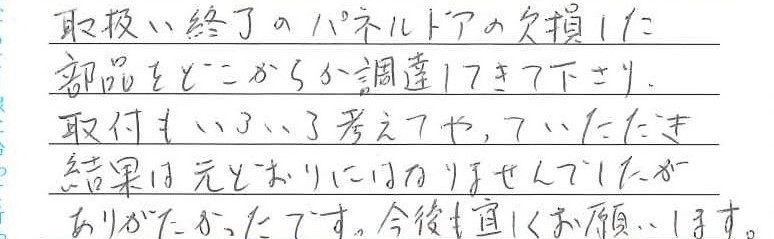 取扱い終了のパネルドアの欠損した
部品をどこからか調達してきて下さり、
取付もいろいろ考えてやっていただき
結果は元どおりにはなりませんでしたが
ありがたかったです。今後も宜しくお願いします。